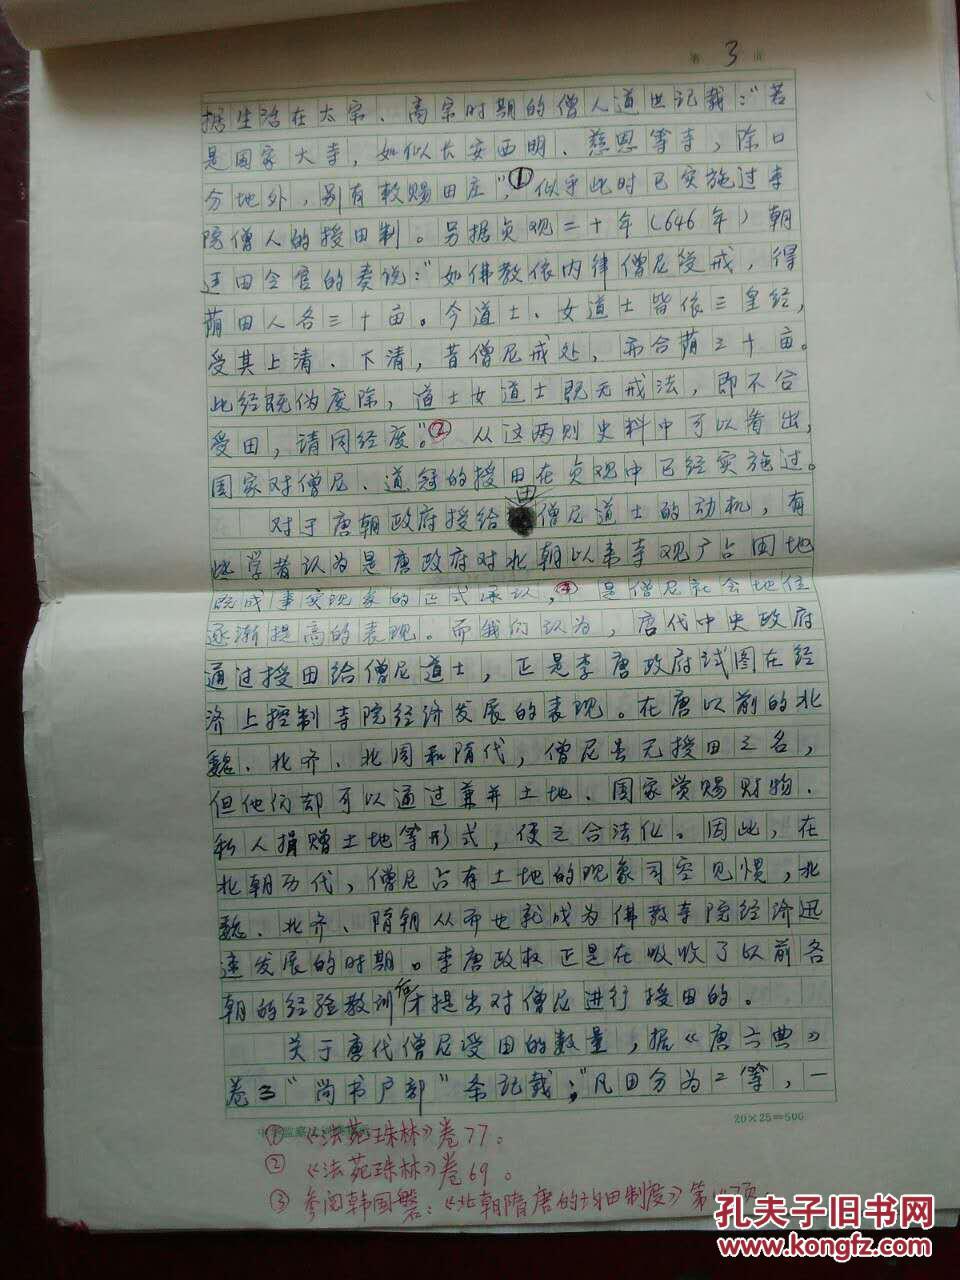 第 3 页
据生活在太宗、高宗时期的僧人道世记载："若
是国家大寺，如似长安西明、慈恩等寺，除口
分地外，别有敕赐田庄"，①似乎此时已实施过寺
院僧人的授田制。另据贞观二十年（646年）朝
廷田令官的奏说："如佛教依内律僧尼受戒，得
荫田人各三十亩。今道士、女道士皆依三皇经，
受其上清、下清，昔僧尼戒处，亦合荫三十亩。
此经既伪废除，道士女道士既无戒法，即不合
受田，请同经废"。②从这两则史料中可以看出，
国家对僧尼、道冠的授田在贞观中已经实施过。
对于唐朝政府授给田僧尼道士的动机，有
些学者认为是唐政府对北朝以来寺观广占田地
既成事实现象的正式承认，③是僧尼社会地位
逐渐提高的表现。而我们认为，唐代中央政府
通过授田给僧尼道士，正是李唐政府试图在经
济上控制寺院经济发展的表现。在唐以前的北
魏、北齐、北周和隋代，僧尼虽无授田之名，
但他们却可以通过兼并土地、国家赏赐财物、
私人捐赠土地等形式，使之合法化。因此，在
北朝历代，僧尼占有土地的现象司空见惯，北
魏、北齐、隋朝从而也就成为佛教寺院经济迅
速发展的时期。李唐政权正是在吸收了以前各
朝的经验教训后才提出对僧尼进行授田的。
关于唐代僧尼受田的数量，据《唐六典》
卷3"尚书户部"条记载："凡田分为二等，一
20×25=500
①《法苑珠林》卷77。
②《法苑珠林》卷69。
③参阅韩国磐：《北朝隋唐的均田制度》第 页
孔夫子旧书网
www.kongfz.com